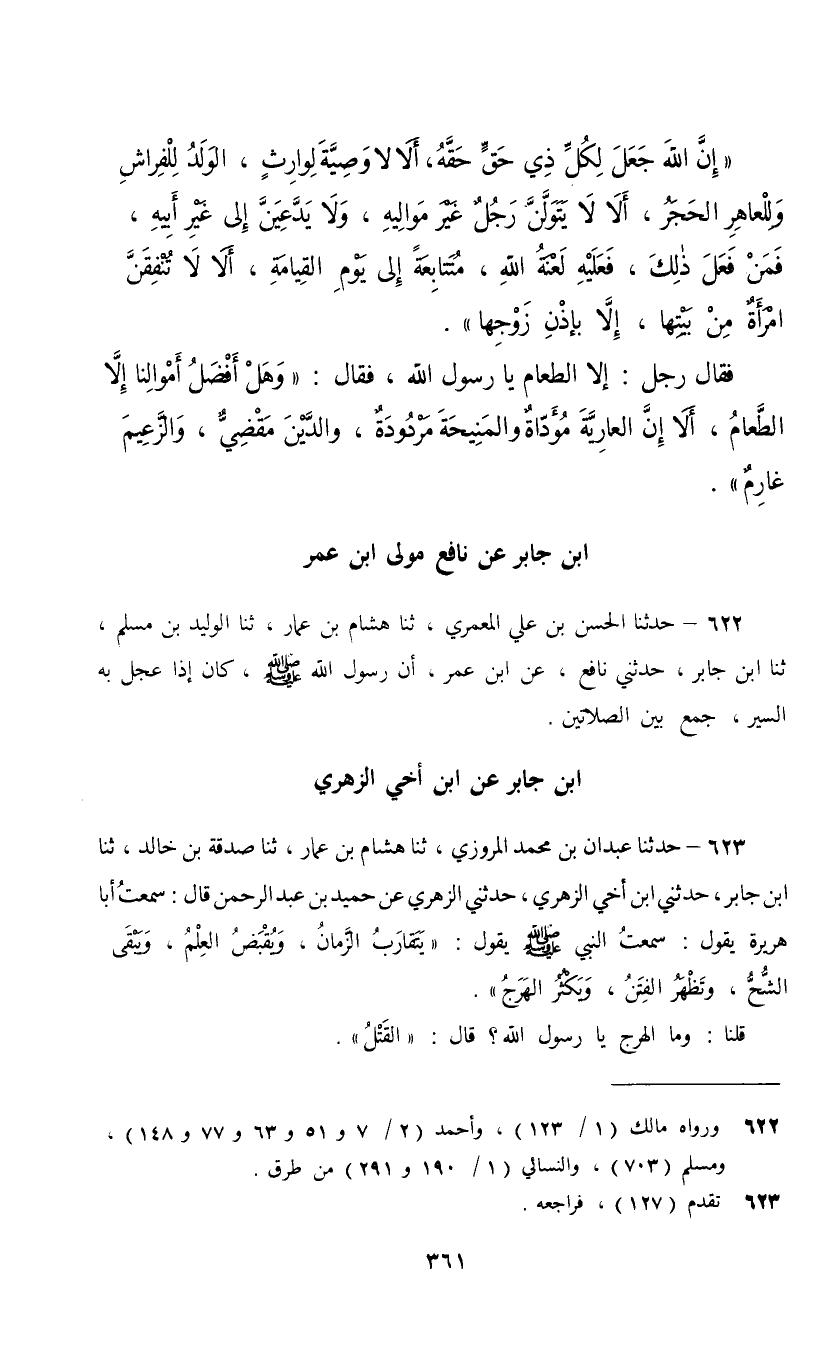 « إِنَّ اللهَ جَعَلَ لِكُلِّ ذِي حَقٍّ حَقَّهُ، أَلَا لا وَصِيَّةَ لِوارِثٍ ، الوَلَدُ لِلْفِراشِ
وَلِلْعاهِرِ الحَجَرُ ، أَلَا لَا يَتَوَلَّنَّ رَجُلٌ غَيْرَ مَوالِيهِ ، وَلَا يَدَّعِيَنَّ إِلى غَيْرِ أَبِيهِ ،
فَمَنْ فَعَلَ ذٰلِكَ ، فَعَلَيْهِ لَعْنَةُ اللهِ ، مُتَتابِعَةً إِلى يَوْمِ القِيامَةِ ، أَلَا لَا تُنْفِقَنَّ
امْرَأَةٌ مِنْ بَيْتِها ، إِلَّا بإِذْنِ زَوْجِها » .
فقال رجل : إلا الطعام يا رسول الله ، فقال : « وَهَلْ أَفْضَلُ أَمْوالِنا إِلَّا
الطَّعامُ ، أَلَا إِنَّ العارِيَّةَ مُؤَدّاةٌ والمَنِيحَةَ مَرْدُودَةٌ ، والدَّيْنَ مَقْضِيٌّ ، وَالزَّعِيمَ
غارِمٌ » .
ابن جابر عن نافع مولى ابن عمر
٦٢٢ – حدثنا الحسن بن علي المعمري ، ثنا هشام بن عمار ، ثنا الوليد بن مسلم ،
ثنا ابن جابر ، حدثني نافع ، عن ابن عمر ، أن رسول الله ﷺ ، كان إذا عجل به
السير ، جمع بين الصلاتين .
ابن جابر عن ابن أخي الزهري
٦٢٣ – حدثنا عبدان بن محمد المروزي ، ثنا هشام بن عمار ، ثنا صدقة بن خالد ، ثنا
ابن جابر ، حدثني ابن أخي الزهري ، حدثني الزهري عن حميد بن عبد الرحمن قال : سمعتُ أبا
هريرة يقول : سمعتُ النبي ﷺ يقول : « يَتَقارَبُ الزَّمانُ ، وَيُقْبَضُ العِلْمُ ، وَيَبْقَى
الشُّحُّ ، وتَظْهَرُ الفِتَنُ ، وَيَكْثُرُ الهَرَجُ » .
قلنا : وما الهرج يا رسول الله ؟ قال : « القَتْلُ » .
٦٢٢ ورواه مالك ( ١ / ١٢٣ ) ، وأحمد ( ٢ / ٧ و ٥١ و ٦٣ و ٧٧ و ١٤٨ ) ،
ومسلم ( ٧٠٣ ) ، والنسائي ( ١ / ١٩٠ و ٢٩١ ) من طرق .
٦٢٣ تقدم ( ١٢٧ ) ، فراجعه .
٣٦١